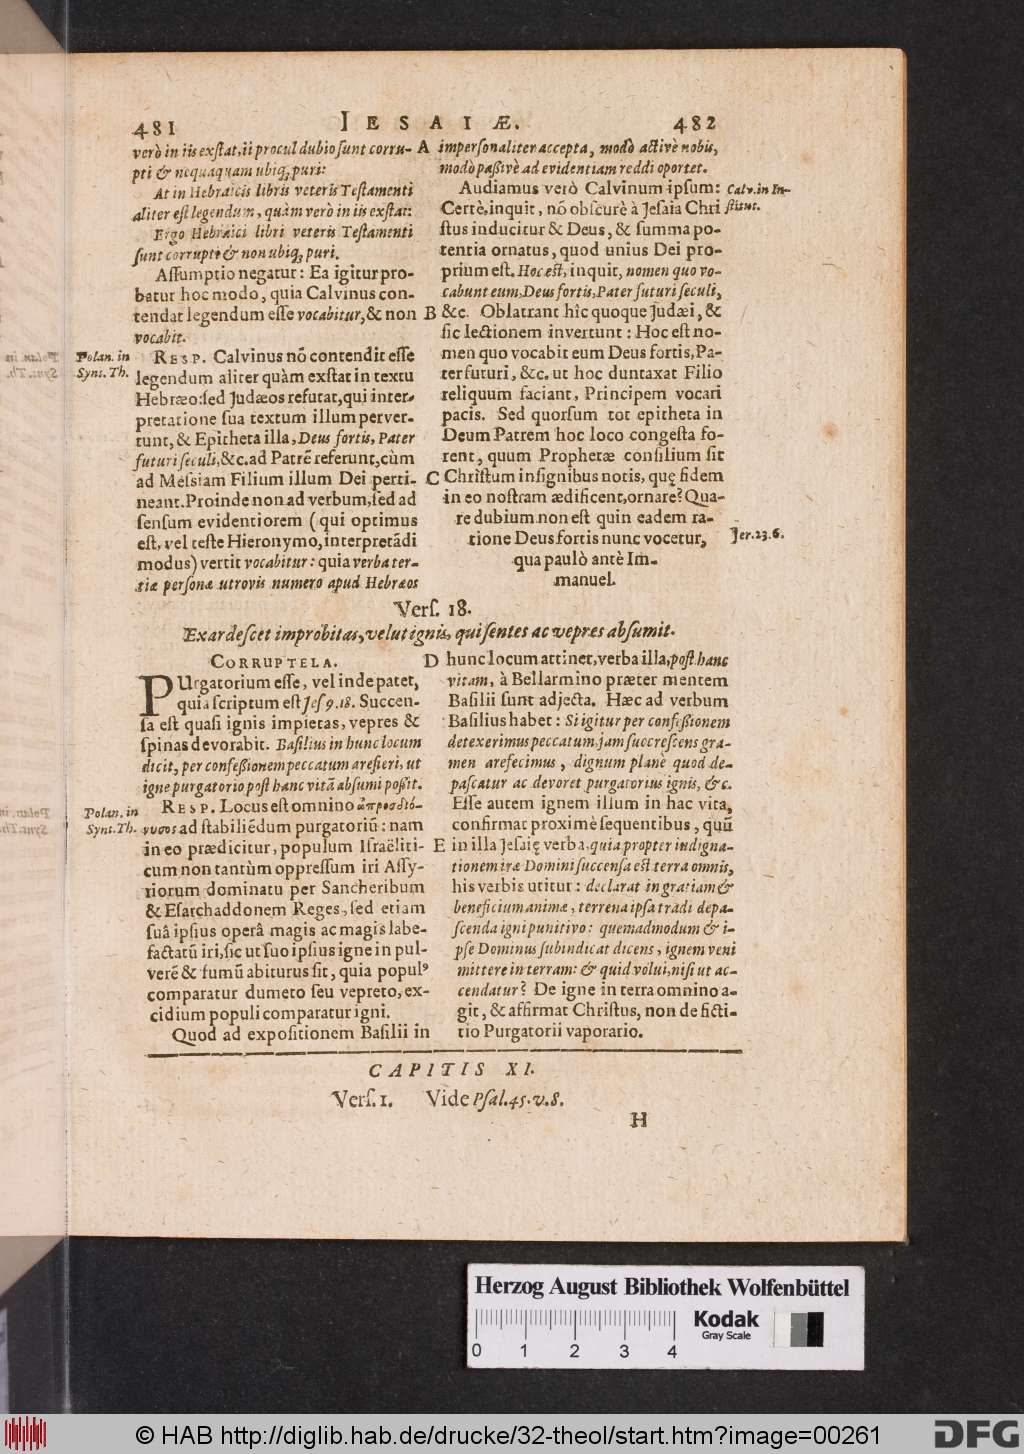 481
IESAIÆ.
482
verò in iis exstat, ii procul dubio sunt corru-
pti & nequaquam ubiq; puri:
At in Hebraicis libris veteris Testamenti
aliter est legendum, quàm verò in iis exstat:
Ergo Hebraici libri veteris Testamenti
sunt corrupti & non ubiq; puri.
Assumptio negatur: Ea igitur pro-
batur hoc modo, quia Calvinus con-
tendat legendum esse vocabitur, & non
vocabit.
Polan. in
Synt. Th.
RESP. Calvinus nō contendit esse
legendum aliter quàm exstat in textu
Hebræo: sed Judæos refutat, qui inter-
pretatione sua textum illum perver-
tunt, & Epitheta illa, Deus fortis, Pater
futuri seculi, &c. ad Patrē referunt, cùm
ad Messiam Filium illum Dei perti-
neant. Proinde non ad verbum, sed ad
sensum evidentiorem (qui optimus
est, vel teste Hieronymo, interpretādi
modus) vertit vocabitur: quia verba ter-
tiæ personæ utrovis numero apud Hebræos
A
B
C
impersonaliter accepta, modò activè nobis,
modò passivè ad evidentiam reddi oportet.
Audiamus verò Calvinum ipsum:
Calv. in In-
stitut.
Certè, inquit, nō obscurè à Jesaia Chri
stus inducitur & Deus, & summa po-
tentia ornatus, quod unius Dei pro-
prium est. Hoc est, inquit, nomen quo vo-
cabunt eum, Deus fortis, Pater futuri seculi,
&c. Oblatrant hîc quoque Judæi, &
sic lectionem invertunt: Hoc est no-
men quo vocabit eum Deus fortis, Pa-
ter futuri, &c. ut hoc duntaxat Filio
reliquum faciant, Principem vocari
pacis. Sed quorsum tot epitheta in
Deum Patrem hoc loco congesta fo-
rent, quum Prophetæ consilium sit
Christum insignibus notis, quę fidem
in eo nostram ædificent, ornare? Qua-
re dubium non est quin eadem ra-
tione Deus fortis nunc vocetur,
qua paulò antè Im-
manuel.
Jer. 23.6.
Vers. 18.
Exardescet improbitas, velut ignis, qui sentes ac vepres absumit.
CORRUPTELA.
PUrgatorium esse, vel inde patet,
quia scriptum est Jes 9.18. Succen-
sa est quasi ignis impietas, vepres &
spinas devorabit. Basilius in hunc locum
dicit, per confessionem peccatum aresieri, ut
igne purgatorio post hanc vitā absumi possit.
Polan. in
Synt. Th.
RESP. Locus est omnino ἀπροσδιό-
νυσος ad stabiliēdum purgatoriū: nam
in eo prædicitur, populum Israëliti-
cum non tantùm oppressum iri Assy-
riorum dominatu per Sancheribum
& Esarchaddonem Reges, sed etiam
suâ ipsius operâ magis ac magis labe-
factatū iri, sic ut suo ipsius igne in pul-
verē & fumū abiturus sit, quia populꝰ
comparatur dumeto seu vepreto, ex-
cidium populi comparatur igni.
Quod ad expositionem Basilii in
D
E
hunc locum attinet, verba illa, post hanc
vitam, à Bellarmino præter mentem
Basilii sunt adjecta. Hæc ad verbum
Basilius habet: Si igitur per confessionem
detexerimus peccatum, jam succrescens gra-
men arefecimus, dignum planè quod de-
pascatur ac devoret purgatorius ignis, &c.
Esse autem ignem illum in hac vita,
confirmat proximè sequentibus, quū
in illa Jesaię verba, quia propter indigna-
tionem iræ Domini succensa est terra omnis,
his verbis utitur: declarat in gratiam &
beneficium animæ, terrena ipsa tradi depa-
scenda igni punitivo: quemadmodum & i-
pse Dominus subindicat dicens, ignem veni
mittere in terram: & quid volui, nisi ut ac-
cendatur? De igne in terra omnino a-
git, & affirmat Christus, non de ficti-
tio Purgatorii vaporario.
CAPITIS XI.
Vers. 1. Vide Psal. 45. v. 8.
H
Herzog August Bibliothek Wolfenbüttel
0 1 2 3 4
Kodak
Gray Scale
© HAB http://diglib.hab.de/drucke/32-theol/start.htm?image=00261
DFG